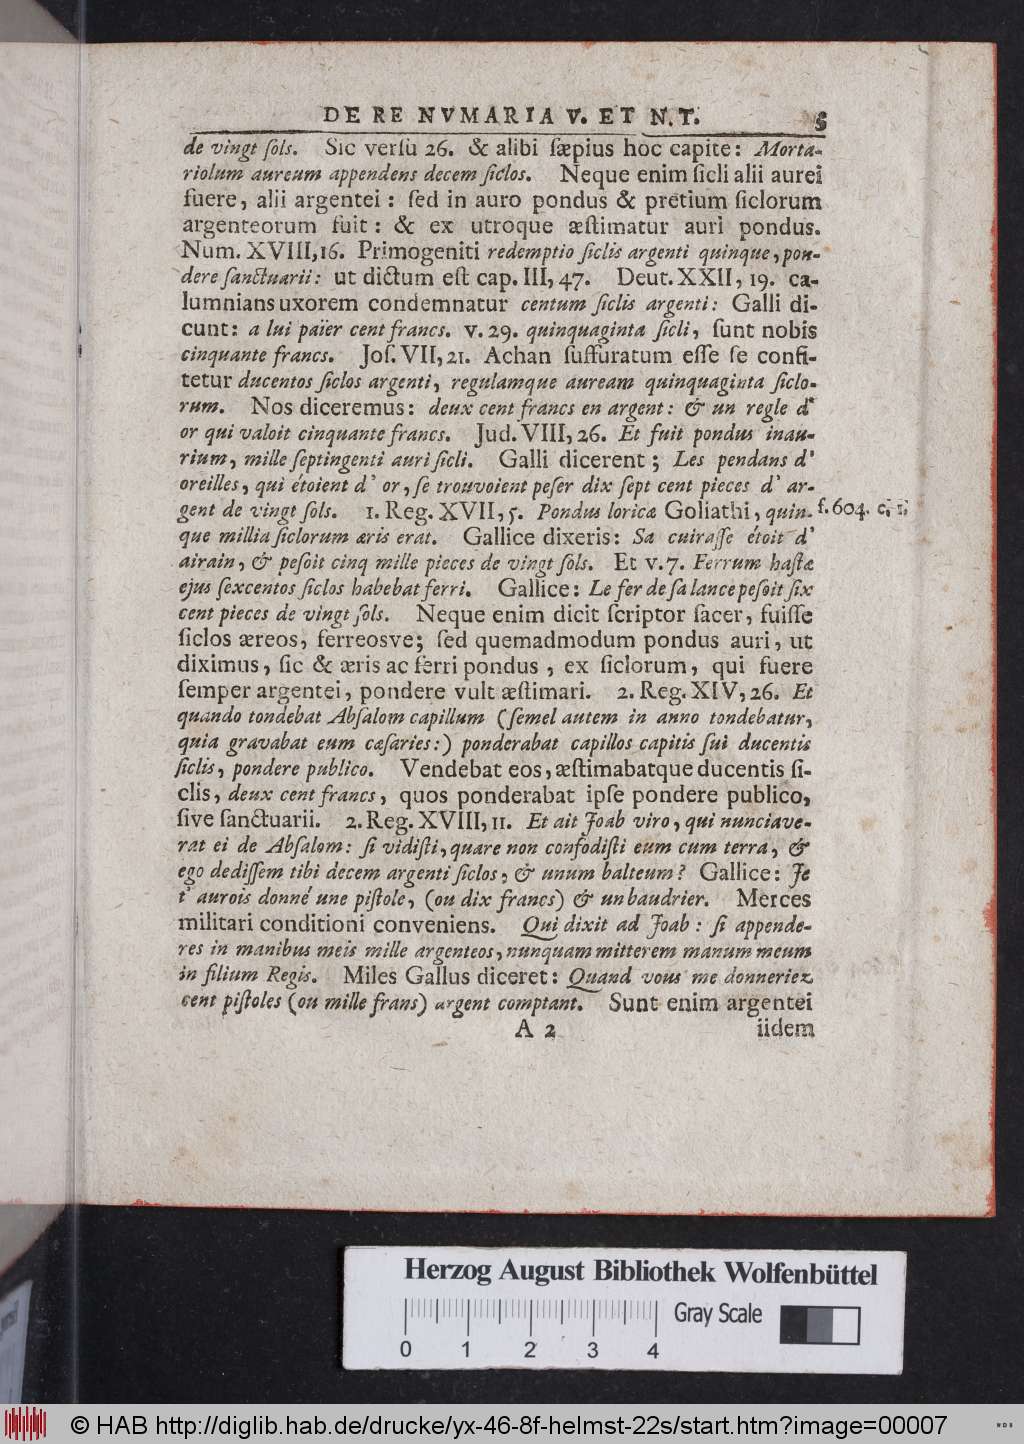 DE RE NVMARIA V. ET N. T. 5
de vingt ſols. Sic verſu 26. & alibi ſæpius hoc capite: Morta-
riolum aureum appendens decem ſiclos. Neque enim ſicli alii aurei
fuere, alii argentei: ſed in auro pondus & pretium ſiclorum
argenteorum fuit: & ex utroque æſtimatur auri pondus.
Num. XVIII, 16. Primogeniti redemptio ſiclis argenti quinque, pon-
dere ſanctuarii: ut dictum eſt cap. III, 47. Deut. XXII, 19. ca-
lumnians uxorem condemnatur centum ſiclis argenti: Galli di-
cunt: a lui païer cent francs. v. 29. quinquaginta ſicli, ſunt nobis
cinquante francs. Joſ. VII, 21. Achan ſuffuratum eſſe ſe confi-
tetur ducentos ſiclos argenti, regulamque auream quinquaginta ſiclo-
rum. Nos diceremus: deux cent francs en argent: & un regle d'
or qui valoit cinquante francs. Jud. VIII, 26. Et fuit pondus inau-
rium, mille ſeptingenti auri ſicli. Galli dicerent; Les pendans d'
oreilles, qui étoient d' or, ſe trouvoient peſer dix ſept cent pieces d' ar-
gent de vingt ſols. 1. Reg. XVII, 5. Pondus loricæ Goliathi, quin- f. 604. c. 1.
que millia ſiclorum æris erat. Gallice dixeris: Sa cuiraſſe étoit d'
airain, & peſoit cinq mille pieces de vingt ſols. Et v. 7. Ferrum haſtæ
ejus ſexcentos ſiclos habebat ferri. Gallice: Le fer de ſa lance peſoit ſix
cent pieces de vingt ſols. Neque enim dicit ſcriptor ſacer, fuiſſe
ſiclos æreos, ferreosve; ſed quemadmodum pondus auri, ut
diximus, ſic & æris ac ferri pondus, ex ſiclorum, qui fuere
ſemper argentei, pondere vult æſtimari. 2. Reg. XIV, 26. Et
quando tondebat Abſalom capillum (ſemel autem in anno tondebatur,
quia gravabat eum cæſaries:) ponderabat capillos capitis ſui ducentis
ſiclis, pondere publico. Vendebat eos, æſtimabatque ducentis ſi-
clis, deux cent francs, quos ponderabat ipſe pondere publico,
ſive ſanctuarii. 2. Reg. XVIII, 11. Et ait Joab viro, qui nunciave-
rat ei de Abſalom: ſi vidiſti, quare non confodiſti eum cum terra, &
ego dediſſem tibi decem argenti ſiclos, & unum balteum? Gallice: Je
t' aurois donné une piſtole, (ou dix francs) & un baudrier. Merces
militari conditioni conveniens. Qui dixit ad Joab: ſi appende-
res in manibus meis mille argenteos, nunquam mitterem manum meum
in filium Regis. Miles Gallus diceret: Quand vous me donneriez
cent piſtoles (ou mille frans) argent comptant. Sunt enim argentei
A 2 iidem
Herzog August Bibliothek Wolfenbüttel
Gray Scale
0 1 2 3 4
© HAB http://diglib.hab.de/drucke/yx-46-8f-helmst-22s/start.htm?image=00007